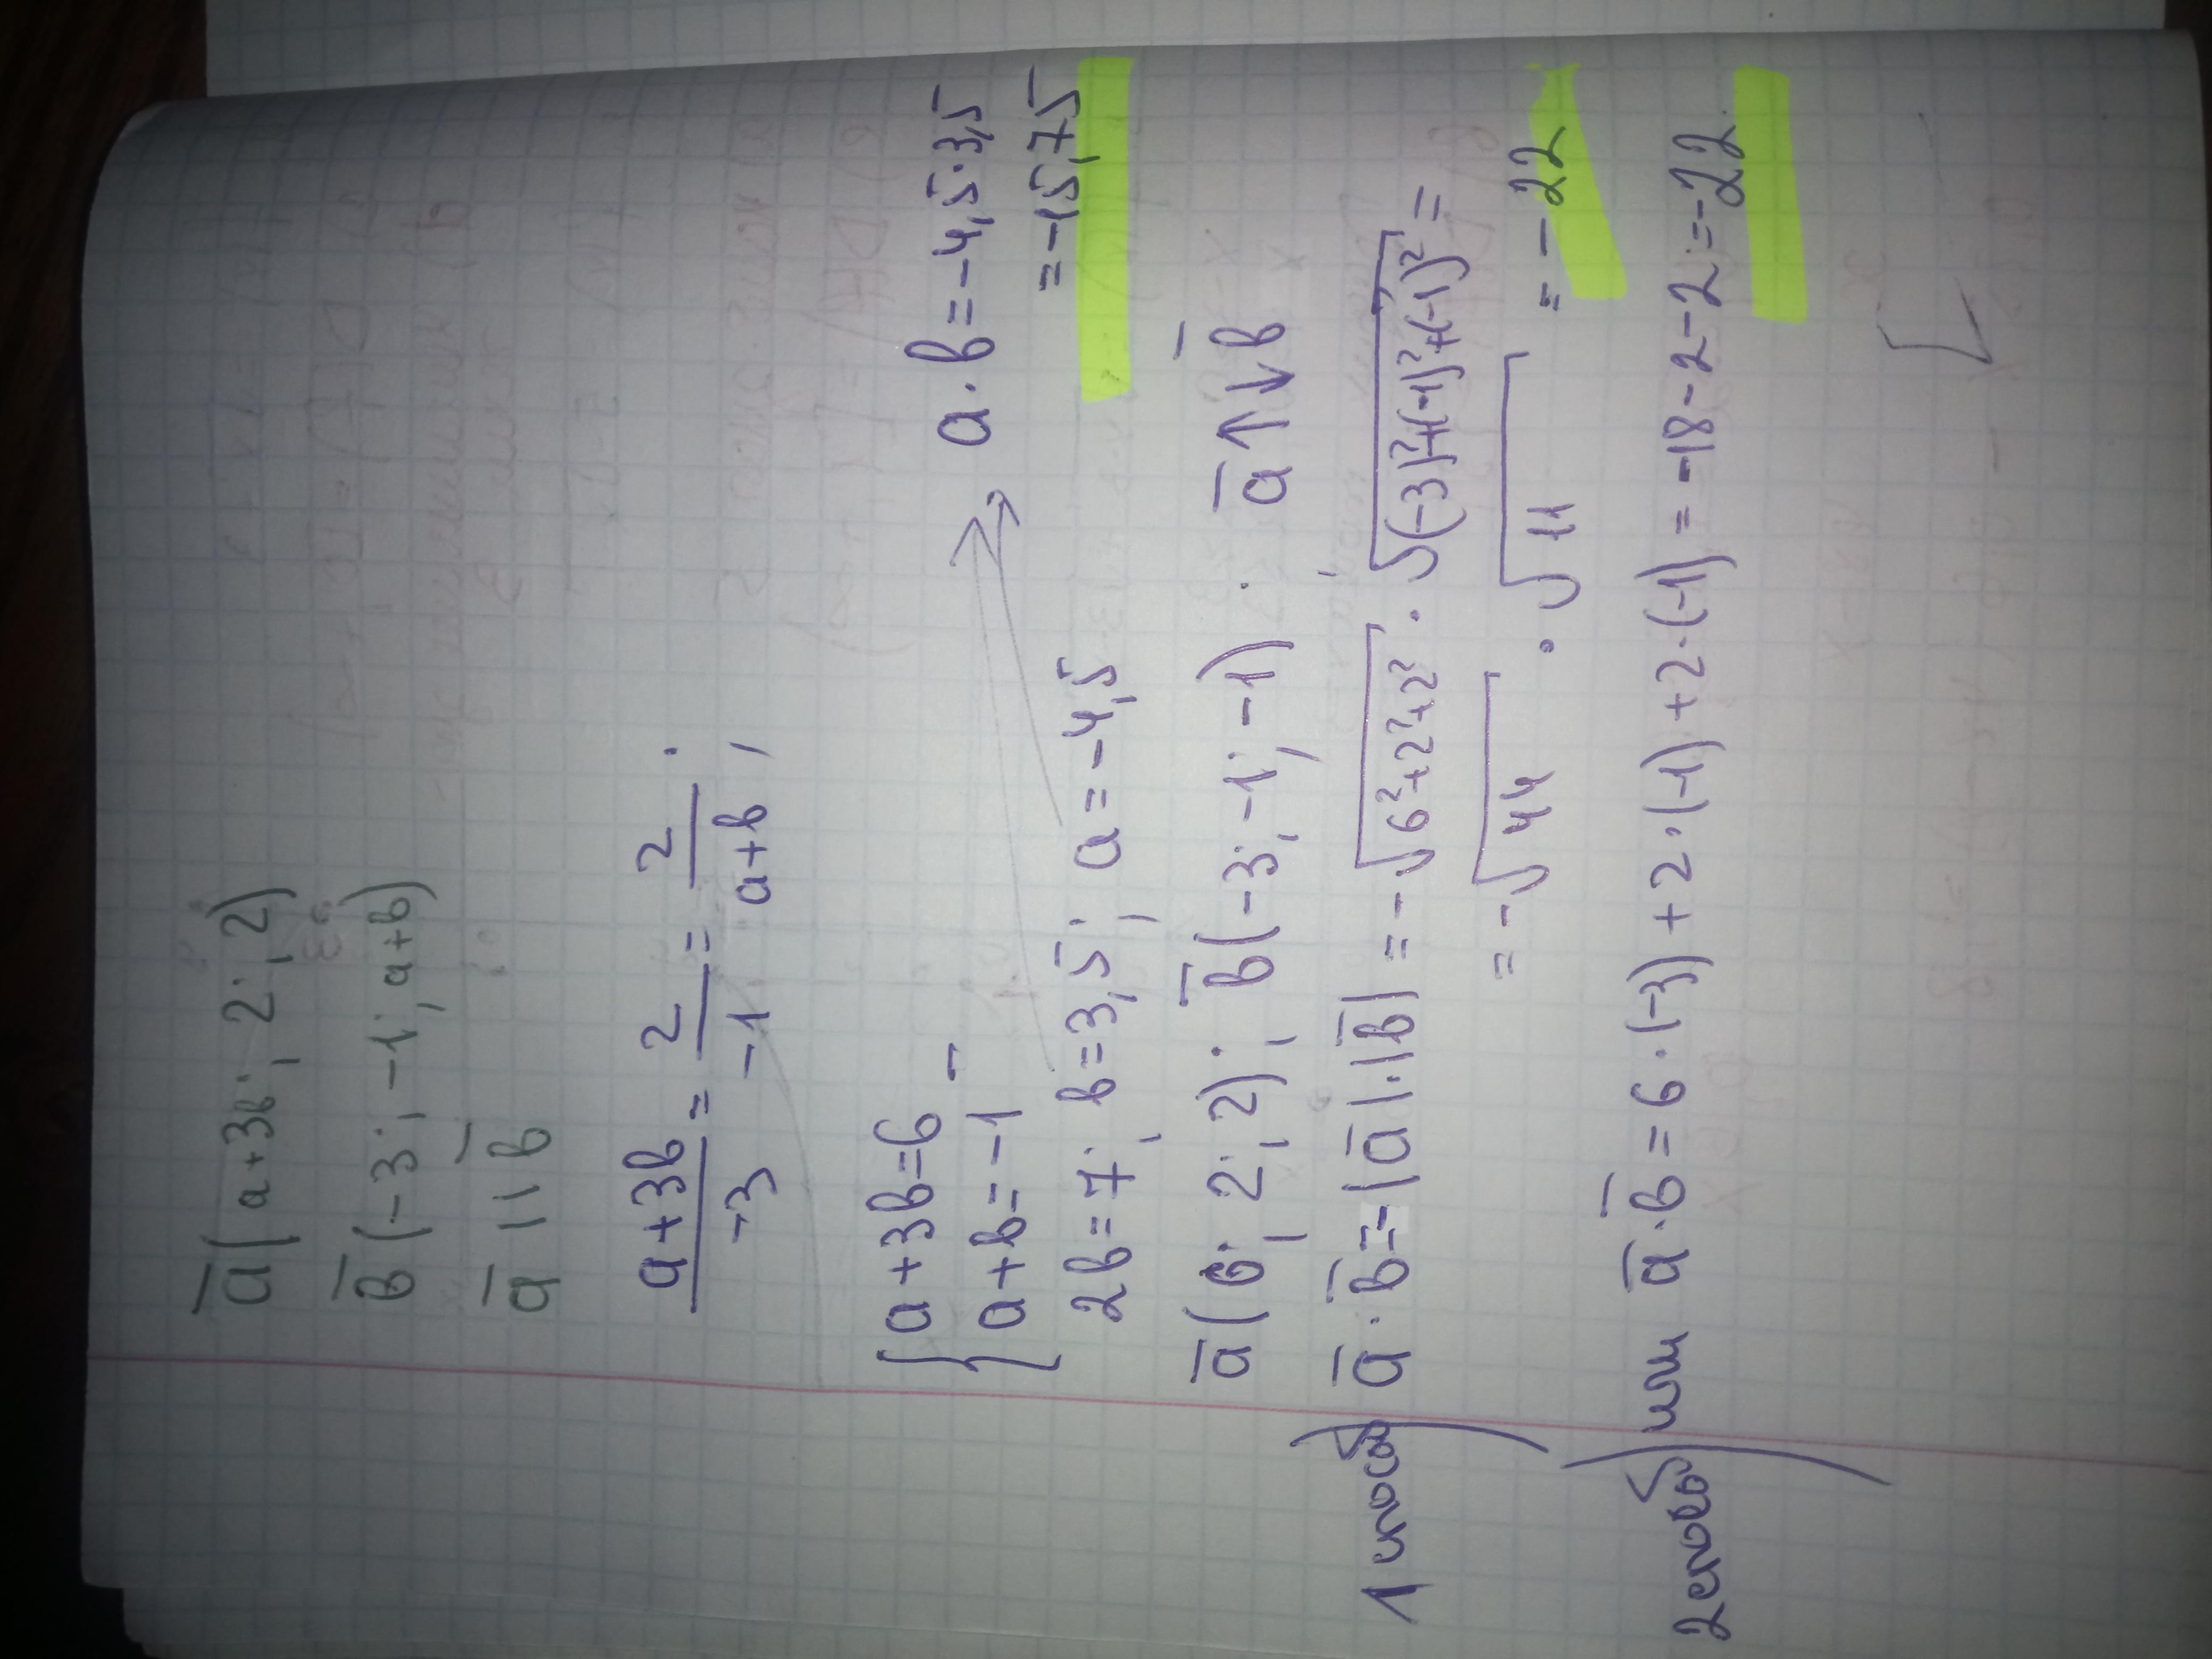 a̅(a+3b; 2; 2)
b̅(-3; -1; a+b)
a̅ || b̅
(a+3b)/(-3) = 2/(-1) = 2/(a+b);
{a+3b=6 -
a+b=-1
2b=7; b=3,5; a=-4,5
a·b=-4,5·3,5
=-15,75
a̅(6; 2; 2); b̅(-3; -1; -1). a̅↑↓b̅
1 способ) a̅·b̅=-|a̅|·|b̅|=-√(6²+2²+2²) · √((-3)²+(-1)²+(-1)²) =
= -√44 · √11 = -22
2 способ) или a̅·b̅=6·(-3)+2·(-1)+2·(-1)=-18-2-2=-22.